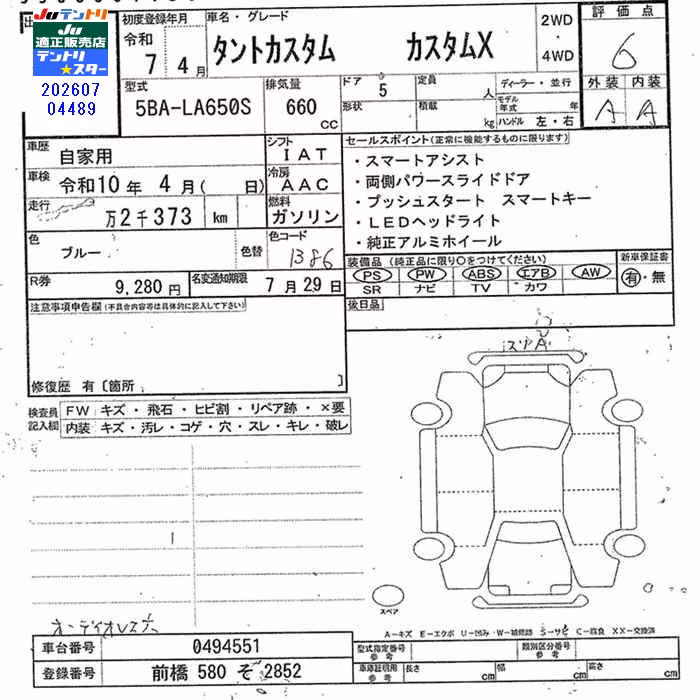 JUテントリ
JU適正販売店
テントリ
★スター
202607
04489
初度登録年月
令和
7 4 月
車名・グレード
タントカスタム カスタムX
2WD
・
4WD
評価点
6
外装 内装
A A
型式
5BA-LA650S
排気量
660
cc
ドア
5
形状
定員
人
積載
kg
ディーラー・並行
モデル年式 年
ハンドル 左・右
車歴
自家用
シフト
IAT
車検
令和10年 4月( 日)
冷房
AAC
走行
万2千373 km
燃料
ガソリン
色
ブルー
色替
色コード
B86
R券
9,280 円
名変通知期限
7 月 29 日
セールスポイント(正常に機能するものに限ります)
・スマートアシスト
・両側パワースライドドア
・プッシュスタート スマートキー
・LEDヘッドライト
・純正アルミホイール
装備品(純正品に限り○をつけてください)
PS PW ABS エアB AW
SR ナビ TV カワ
新車保証書
有・無
後日品
注意事項申告欄(不具合内容等は具体的に記入して下さい)
修復歴 有〔箇所 〕
検査員
記入欄
FW キズ・飛石・ヒビ割・リペア跡・×要
内装 キズ・汚レ・コゲ・穴・スレ・キレ・破レ
スリA
スペア
オーディオレス
A-キズ E-エクボ U-凹み・W-補修跡 S-サビ C-腐食 XX-交換済
車台番号 0494551
登録番号 前橋 580 そ 2852
型式指定番号
参考
類別区分番号
参考
車庫証明用
参考
長さ cm
幅 cm
高さ cm